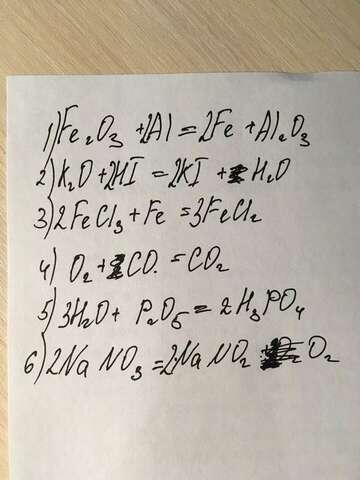 1) Fe₂O₃ + 2Al = 2Fe + Al₂O₃
2) K₂O + 2HI = 2KI + H₂O
3) 2FeCl₃ + Fe = 3FeCl₂
4) O₂ + CO = CO₂
5) 3H₂O + P₂O₅ = 2H₃PO₄
6) 2NaNO₃ = 2NaNO₂ O₂